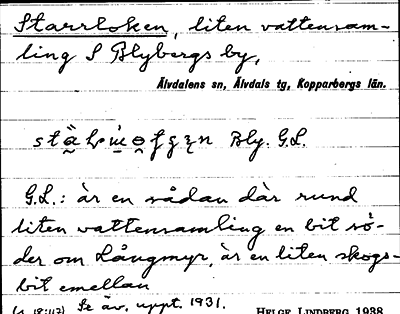 Starrloken, liten vattensam-
ling S Blybergs by,
Älvdalens sn, Älvdals tg, Kopparbergs län.
Bly. G.L.
G.L.: är en sådan där rund
liten vattensamling en bit sö-
der om Långmyr, är en liten skogs-
bit emellan
(s. 18:117) Se äv. uppt. 1931.
HELGE LINDBERG 1938